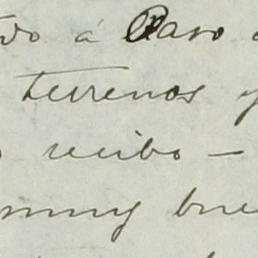 á Paso
terrenos y
recibo —
muy bue